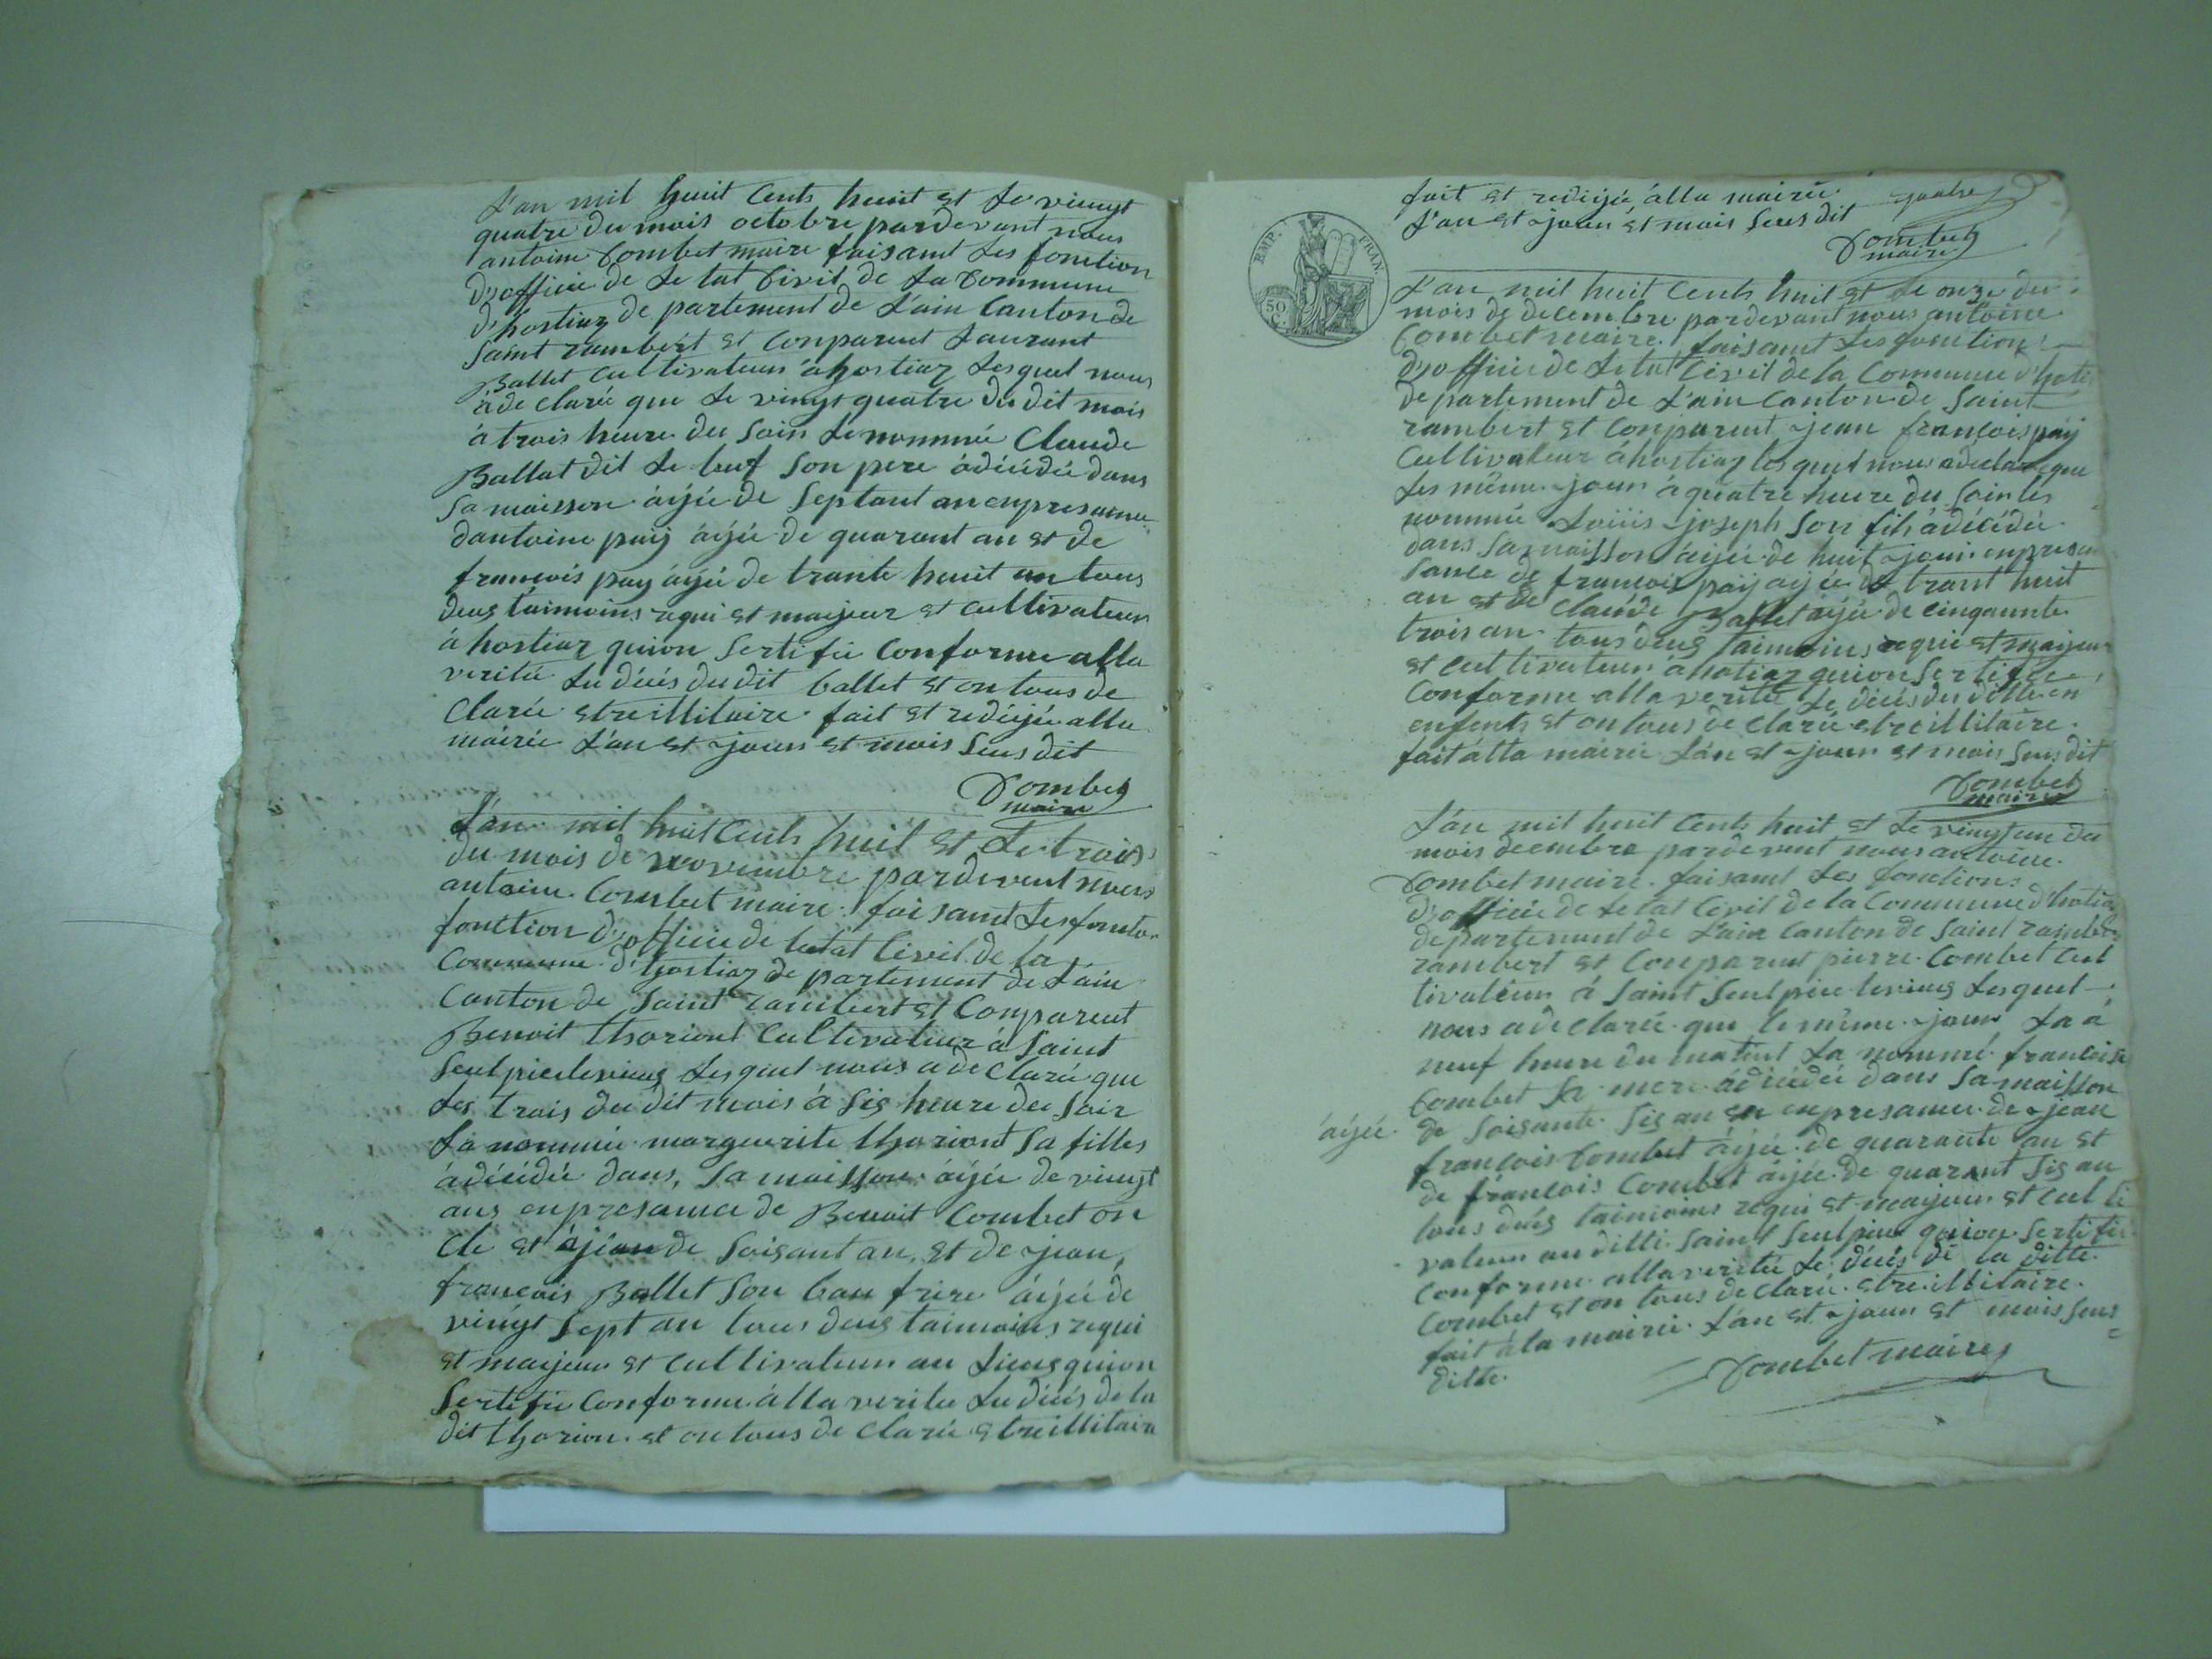 L'an mil huit Cents huit et Le viengt
quatre du mois octobre pardevant nous
antoine Combet maire faisant Les fonction
d'officie de Le tat Civil de La Commune
d'hostiaz de partement de L'ain Canton de
Saint rambert et Conparent Laurant
Ballet Cultivateur à hostiaz Lesquel nous
à de clarée que Le vingt quatre du dit mois
à trois heure du Soir Le nommée Claude
Ballat dit Le buf Son pere à dicidée dans
Sa maisson àijée de Septant an enpresance
dantoine paij àijée de quarant an et de
francois pay àijée de trante huit an tous
deus taimoins requi et maijeur et Cultivateur
à hostiaz quion Sertifie Conforme alla
veritée Le dicis du dit ballet et on tous de
Clarée etreillitaire fait et redijée alla
mairie L'an et jour et mois Sus dit
Combet
maire
L'an mil huit Cents huit et Le trois
du mois de novembre pardevent nous
antoine Combet maire faisant Les foncto
fonction d'officie de letat Civil de la
Commune d'hostiaz de partement de L'ain
Canton de Saint rambert et Conparent
Benoit thoriont Cultivateur à Saint
Seulpice levieus Lesquel nous a de Clarée que
Les trois du dit mois à Sis heure du Soir
La nommée marguerite thoriont Sa filles
à dicidée dans, Sa maisson àijée de vingt
ans enpresance de Benoit Combet on
cle et àjée de Soisant an, et de jean,
francois Ballet Son bau frere àijée de
vingt Sept an tous deus taimoins requi
et maijeur et Cultivateur au Lieus quion
Sertifie Conforme àlla veritee Le dicis de la
dit thorion et on tous de clarée etreillitaire
fait et redijée àlla mairie
L'an et jour et mois Sus dit
Combet
maire
EMP. FRAN.
50
C.
L'an mil huit Cents huit et Le onze du
mois de decembre pardevant nous antoine
Combet maire faisant Les fonction
d'officie de Le tat Civil de la Commune d'hotia
de partement de L'ain Canton de Saint
rambert et Conparent jean francois paij
Cultivateur à hostiaz lesquel nous a declarée que
Les même jour à quatre heure du Soir les
nommée Loiiis joseph Son fih à dicidée
dans Sa maisson àijée de huit jour enpresan
sance de francois paij ajée de trant huit
an et de Claude Ballet àijée de cinquante
trois an tous deus taimoins requi et maijeur
et Cultivateur à hotiaz quion Sertifie
Conforme alla verite Le dicis du ditte en
enfents et on tous de Clarée etreillitaire
fait àlla mairie L'an et jour et mois Sus dit
Combet
maire
L'an mil huit Cents huit et Le vingt un du
mois decembre pardevent nous antoine
Combet maire faisant Les fonctions
d'officie de Le tat Civil de la Commune d'hotia
departement de L'ain Canton de Saint rambert
rambert et Conparent pierre Combet Cul
tivateur à Saint Seulpice levieus Lesquel
nous a de Clarée que le même jour La à
neuf heure du matint La nommé francoise
Combet Sa mere à dicidée dans Sa maisson
àijée de Soisante Sis an en enpresance de jean
francois Combet àijée de quarante an et
de francois Combet àijée de quarant Sis an
tous deus taimoins requi et maijeur et Cul ti
vateur au ditte Saint Seulpice quion Sertifie
Conforme alla veritée Le dicis de la ditte
Combet et on tous de Clarée etre illitaire
fait à la mairie L'an et jour et mois Sus
ditte
Combet maire